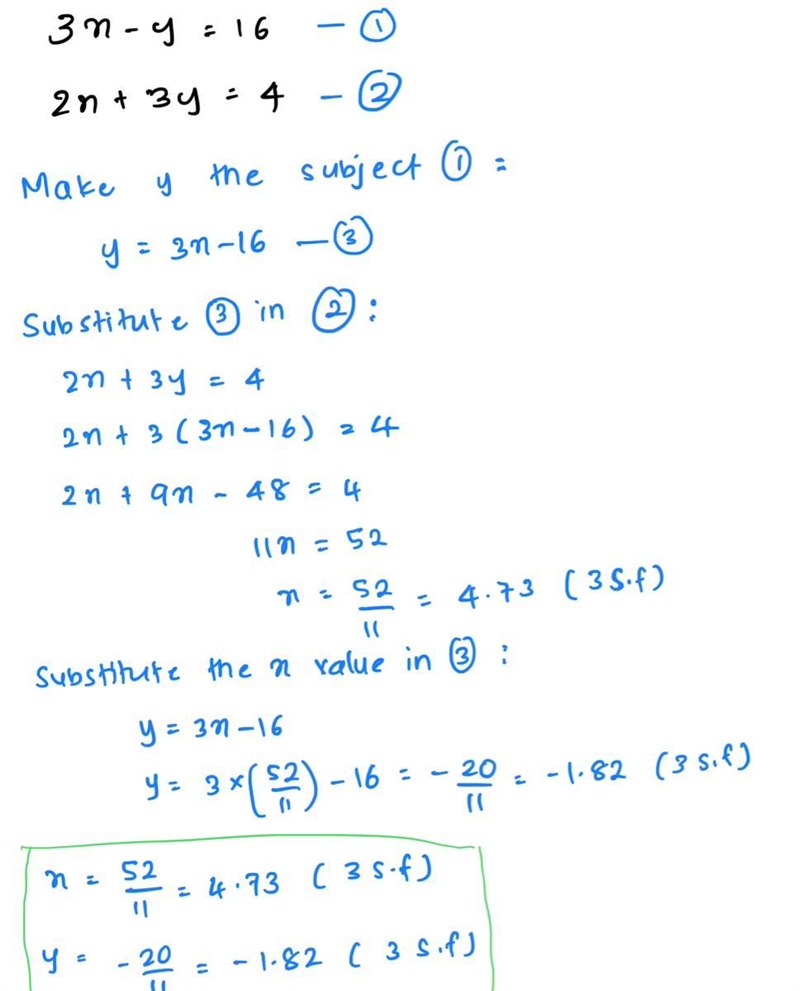 3x - y = 16 — ①
2x + 3y = 4 — ②
Make y the subject ① =
y = 3x - 16 — ③
Substitute ③ in ② :
2x + 3y = 4
2x + 3 (3x - 16) = 4
2x + 9x - 48 = 4
11x = 52
x = 52/11 = 4.73 (3 S.f)
Substitute the x value in ③ :
y = 3x - 16
y = 3 × (52/11) - 16 = - 20/11 = -1.82 (3 s.f)
x = 52/11 = 4.73 (3 s.f)
y = - 20/11 = -1.82 (3 s.f)